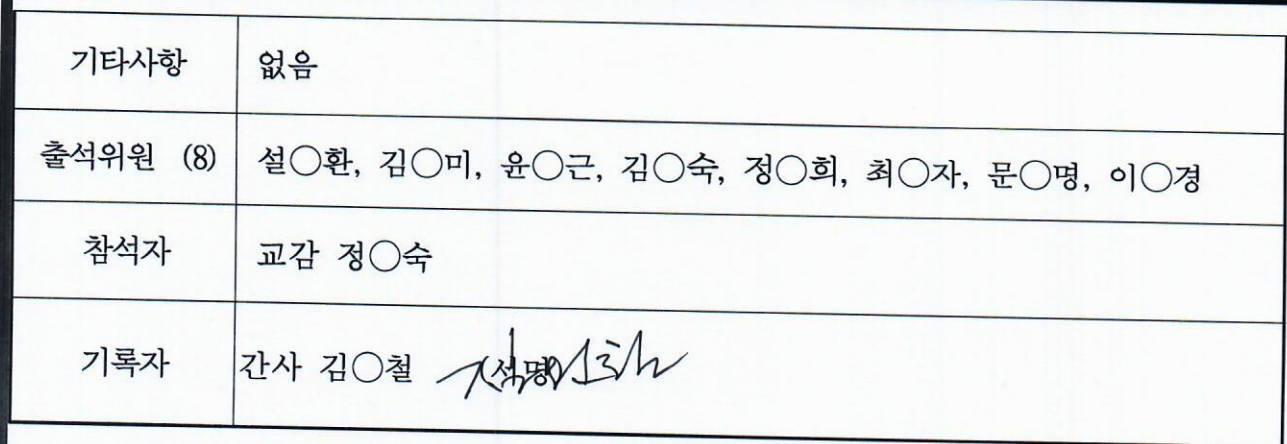 기타사항 없음
출석위원 (8) 설○환, 김○미, 윤○근, 김○숙, 정○희, 최○자, 문○명, 이○경
참석자 교감 정○숙
기록자 간사 김○철 (서명)